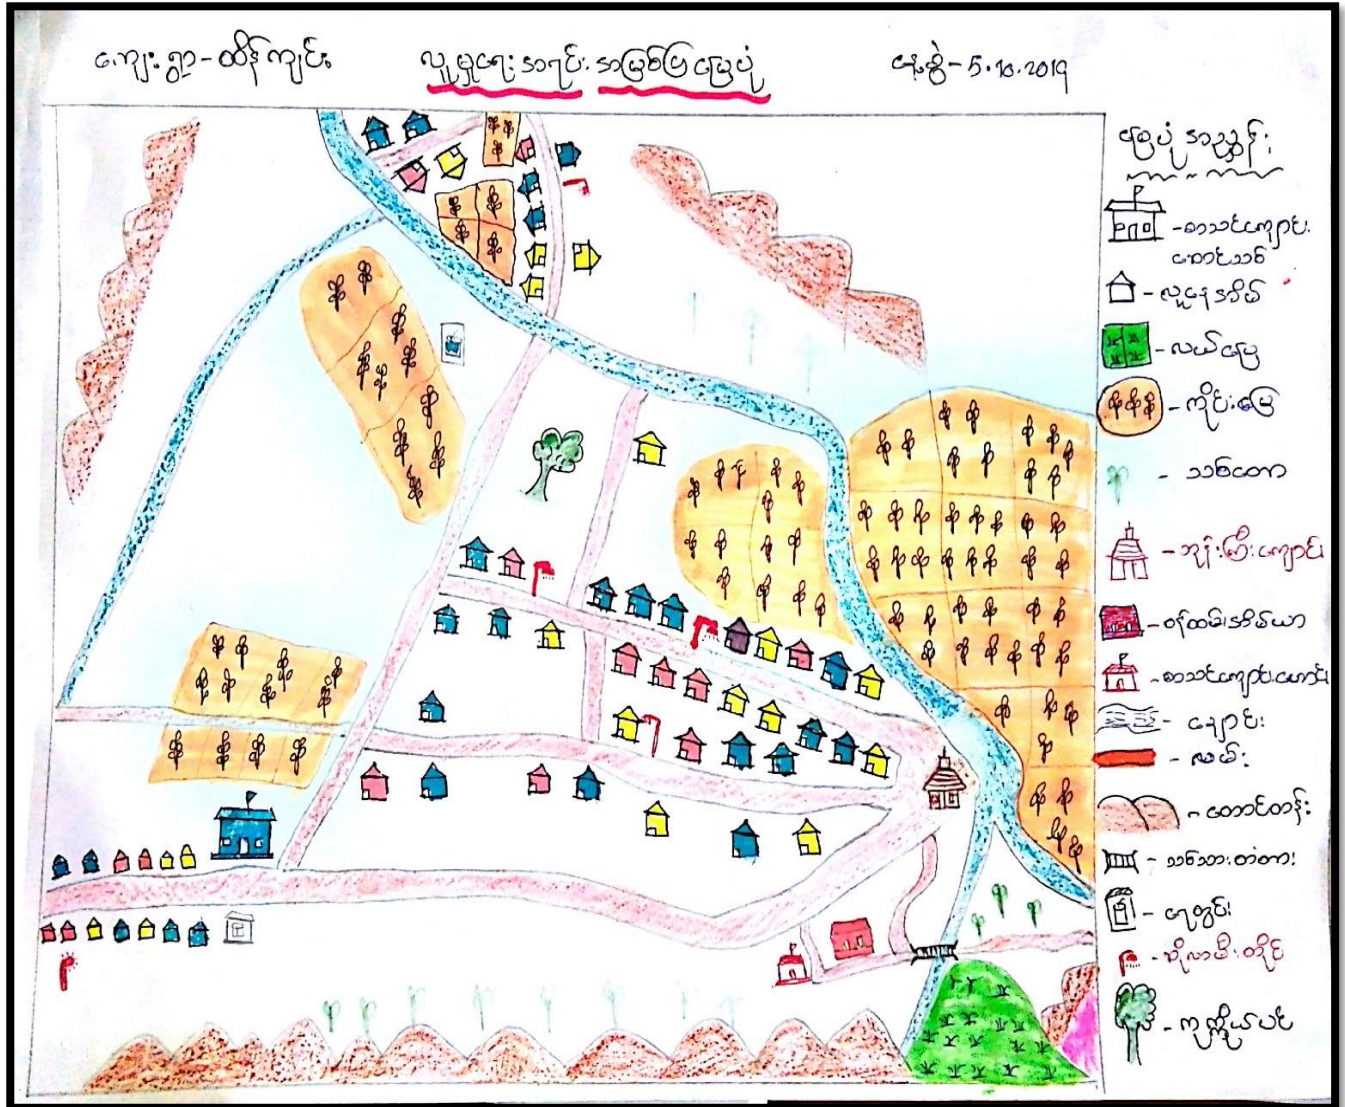 ကျေးရွာ-ထိန်ကျင်း
လူမှုရေးအရင်းအမြစ်ပြမြေပုံ
နေ့စွဲ-5.10.2019
မြေပုံအညွှန်း
-စာသင်ကျောင်းဆောင်သစ်
-လူနေအိမ်
-လယ်မြေ
-ကိုင်းမြေ
- သစ်တော
-ဘုန်းကြီးကျောင်း
-ဝန်ထမ်းအိမ်ယာ
-စာသင်ကျောင်းဟောင်း
- ချောင်း
- လမ်း
- တောင်တန်း
- သစ်သားတံတား
- ရေတွင်း
- ဆိုလာမီးတိုင်
- ကုက္ကိုပင်